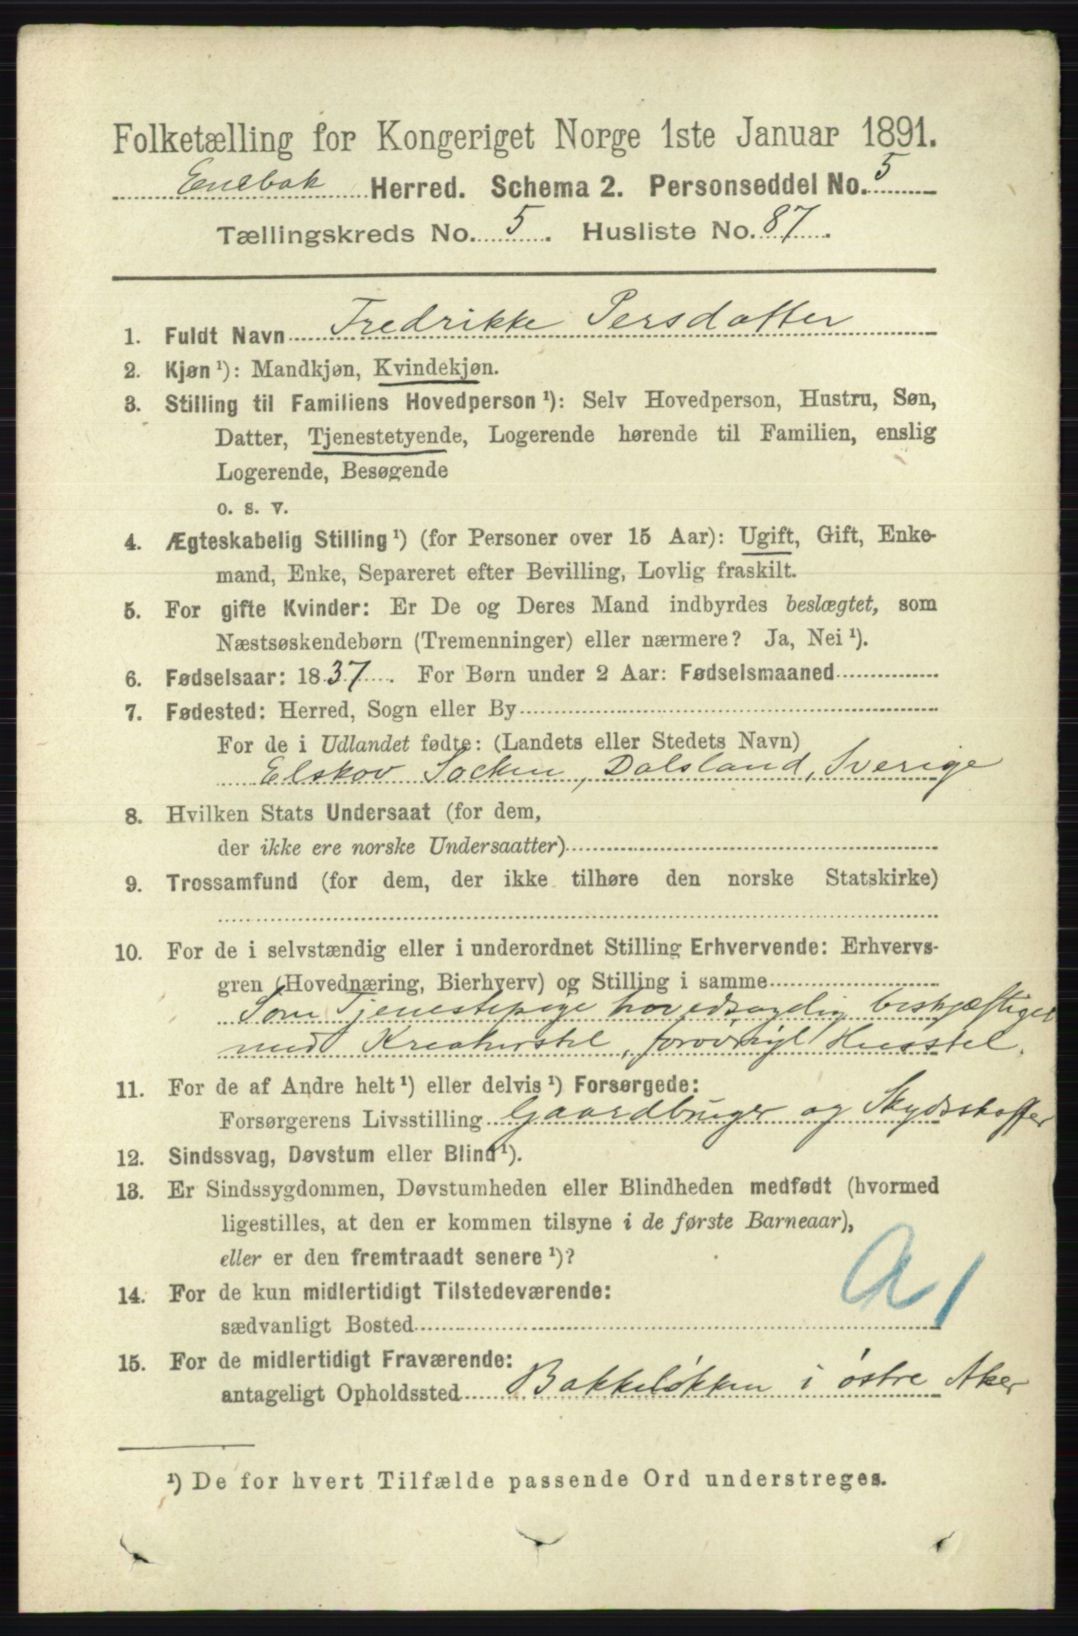 Folketælling for Kongeriget Norge 1ste Januar 1891.
Enebak Herred. Schema 2. Personseddel No. 5
Tællingskreds No. 5. Husliste No. 87.
1. Fuldt Navn Fredrikke Persdatter
2. Kjøn ¹): Mandkjøn, Kvindekjøn.
3. Stilling til Familiens Hovedperson ¹): Selv Hovedperson, Hustru, Søn,
Datter, Tjenestetyende, Logerende hørende til Familien, enslig
Logerende, Besøgende
o. s. v.
4. Ægteskabelig Stilling ¹) (for Personer over 15 Aar): Ugift, Gift, Enke-
mand, Enke, Separeret efter Bevilling, Lovlig fraskilt.
5. For gifte Kvinder: Er De og Deres Mand indbyrdes beslægtet, som
Næstsøskendebørn (Tremenninger) eller nærmere? Ja, Nei ¹).
6. Fødselsaar: 1837. For Børn under 2 Aar: Fødselsmaaned
7. Fødested: Herred, Sogn eller By
For de i Udlandet fødte: (Landets eller Stedets Navn)
Elskov Socken, Dalsland, Sverige
8. Hvilken Stats Undersaat (for dem,
der ikke ere norske Undersaatter)
9. Trossamfund (for dem, der ikke tilhøre den norske Statskirke)
10. For de i selvstændig eller i underordnet Stilling Erhvervende: Erhvervs-
gren (Hovednæring, Bierhverv) og Stilling i samme
Som Tjenestepige hovedsagelig beskjæftiget
med Kreaturstel, forøvrigt Husstel.
11. For de af Andre helt ¹) eller delvis ¹) Forsørgede:
Forsørgerens Livsstilling Gaardbruger og Skydsskaffer
12. Sindssvag, Døvstum eller Blind ¹).
13. Er Sindssygdommen, Døvstumheden eller Blindheden medfødt (hvormed
ligestilles, at den er kommen tilsyne i de første Barneaar),
eller er den fremtraadt senere ¹)?
A1
14. For de kun midlertidigt Tilstedeværende:
sædvanligt Bosted
15. For de midlertidigt Fraværende:
antageligt Opholdssted Bakkeløkken i østre Aker
¹) De for hvert Tilfælde passende Ord understreges.